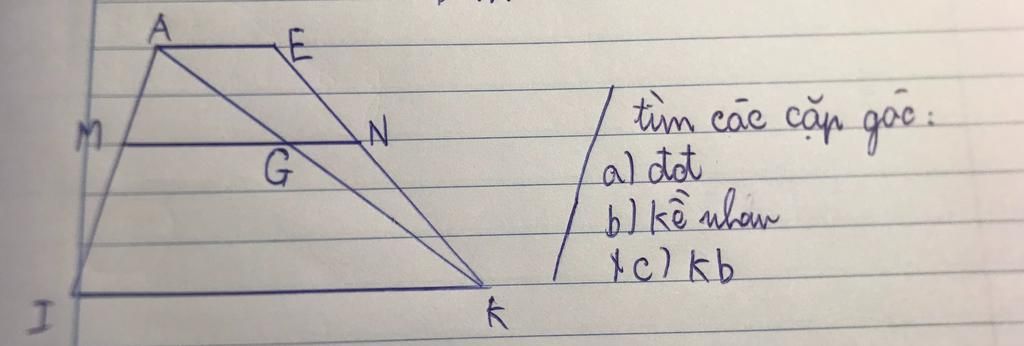 A E
M N
G
I K
tìm các cặp góc:
a) đđt
b) kề nhau
c) kb